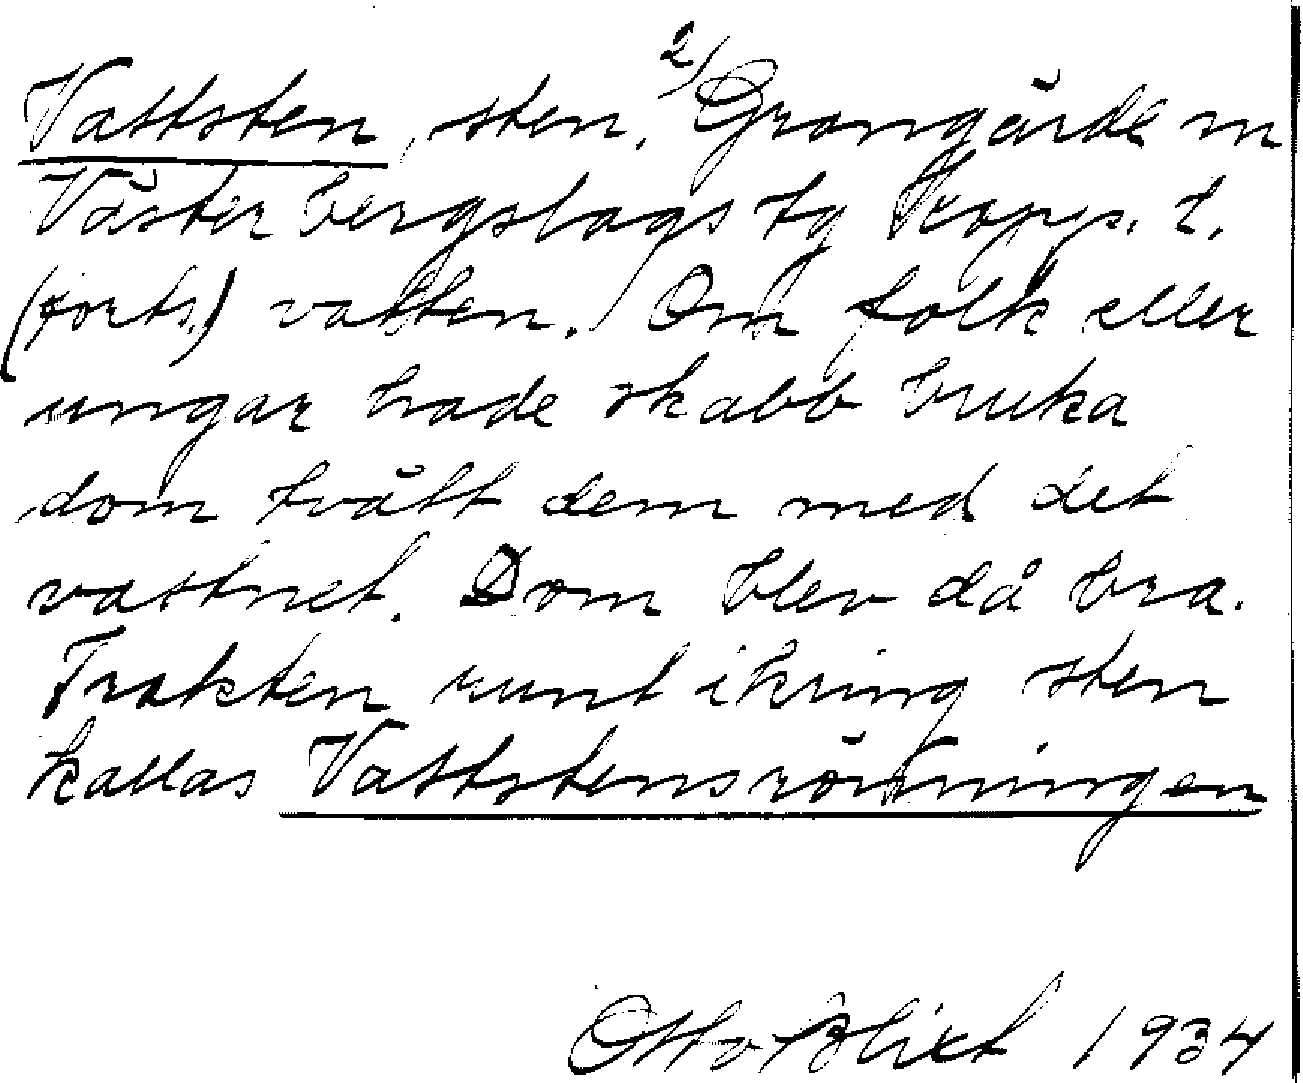 Vattsten, sten, 2/ Grangärde sn
Västerbergslags tg Kopp. l.
(forts.) vatten. Om folk eller
ungar hade skabb bruka
dom tvätt dem med det
vattnet. Dom blev då bra.
Trakten runt ikring sten
kallas Vattstensrönningen
Otto Blixt 1934